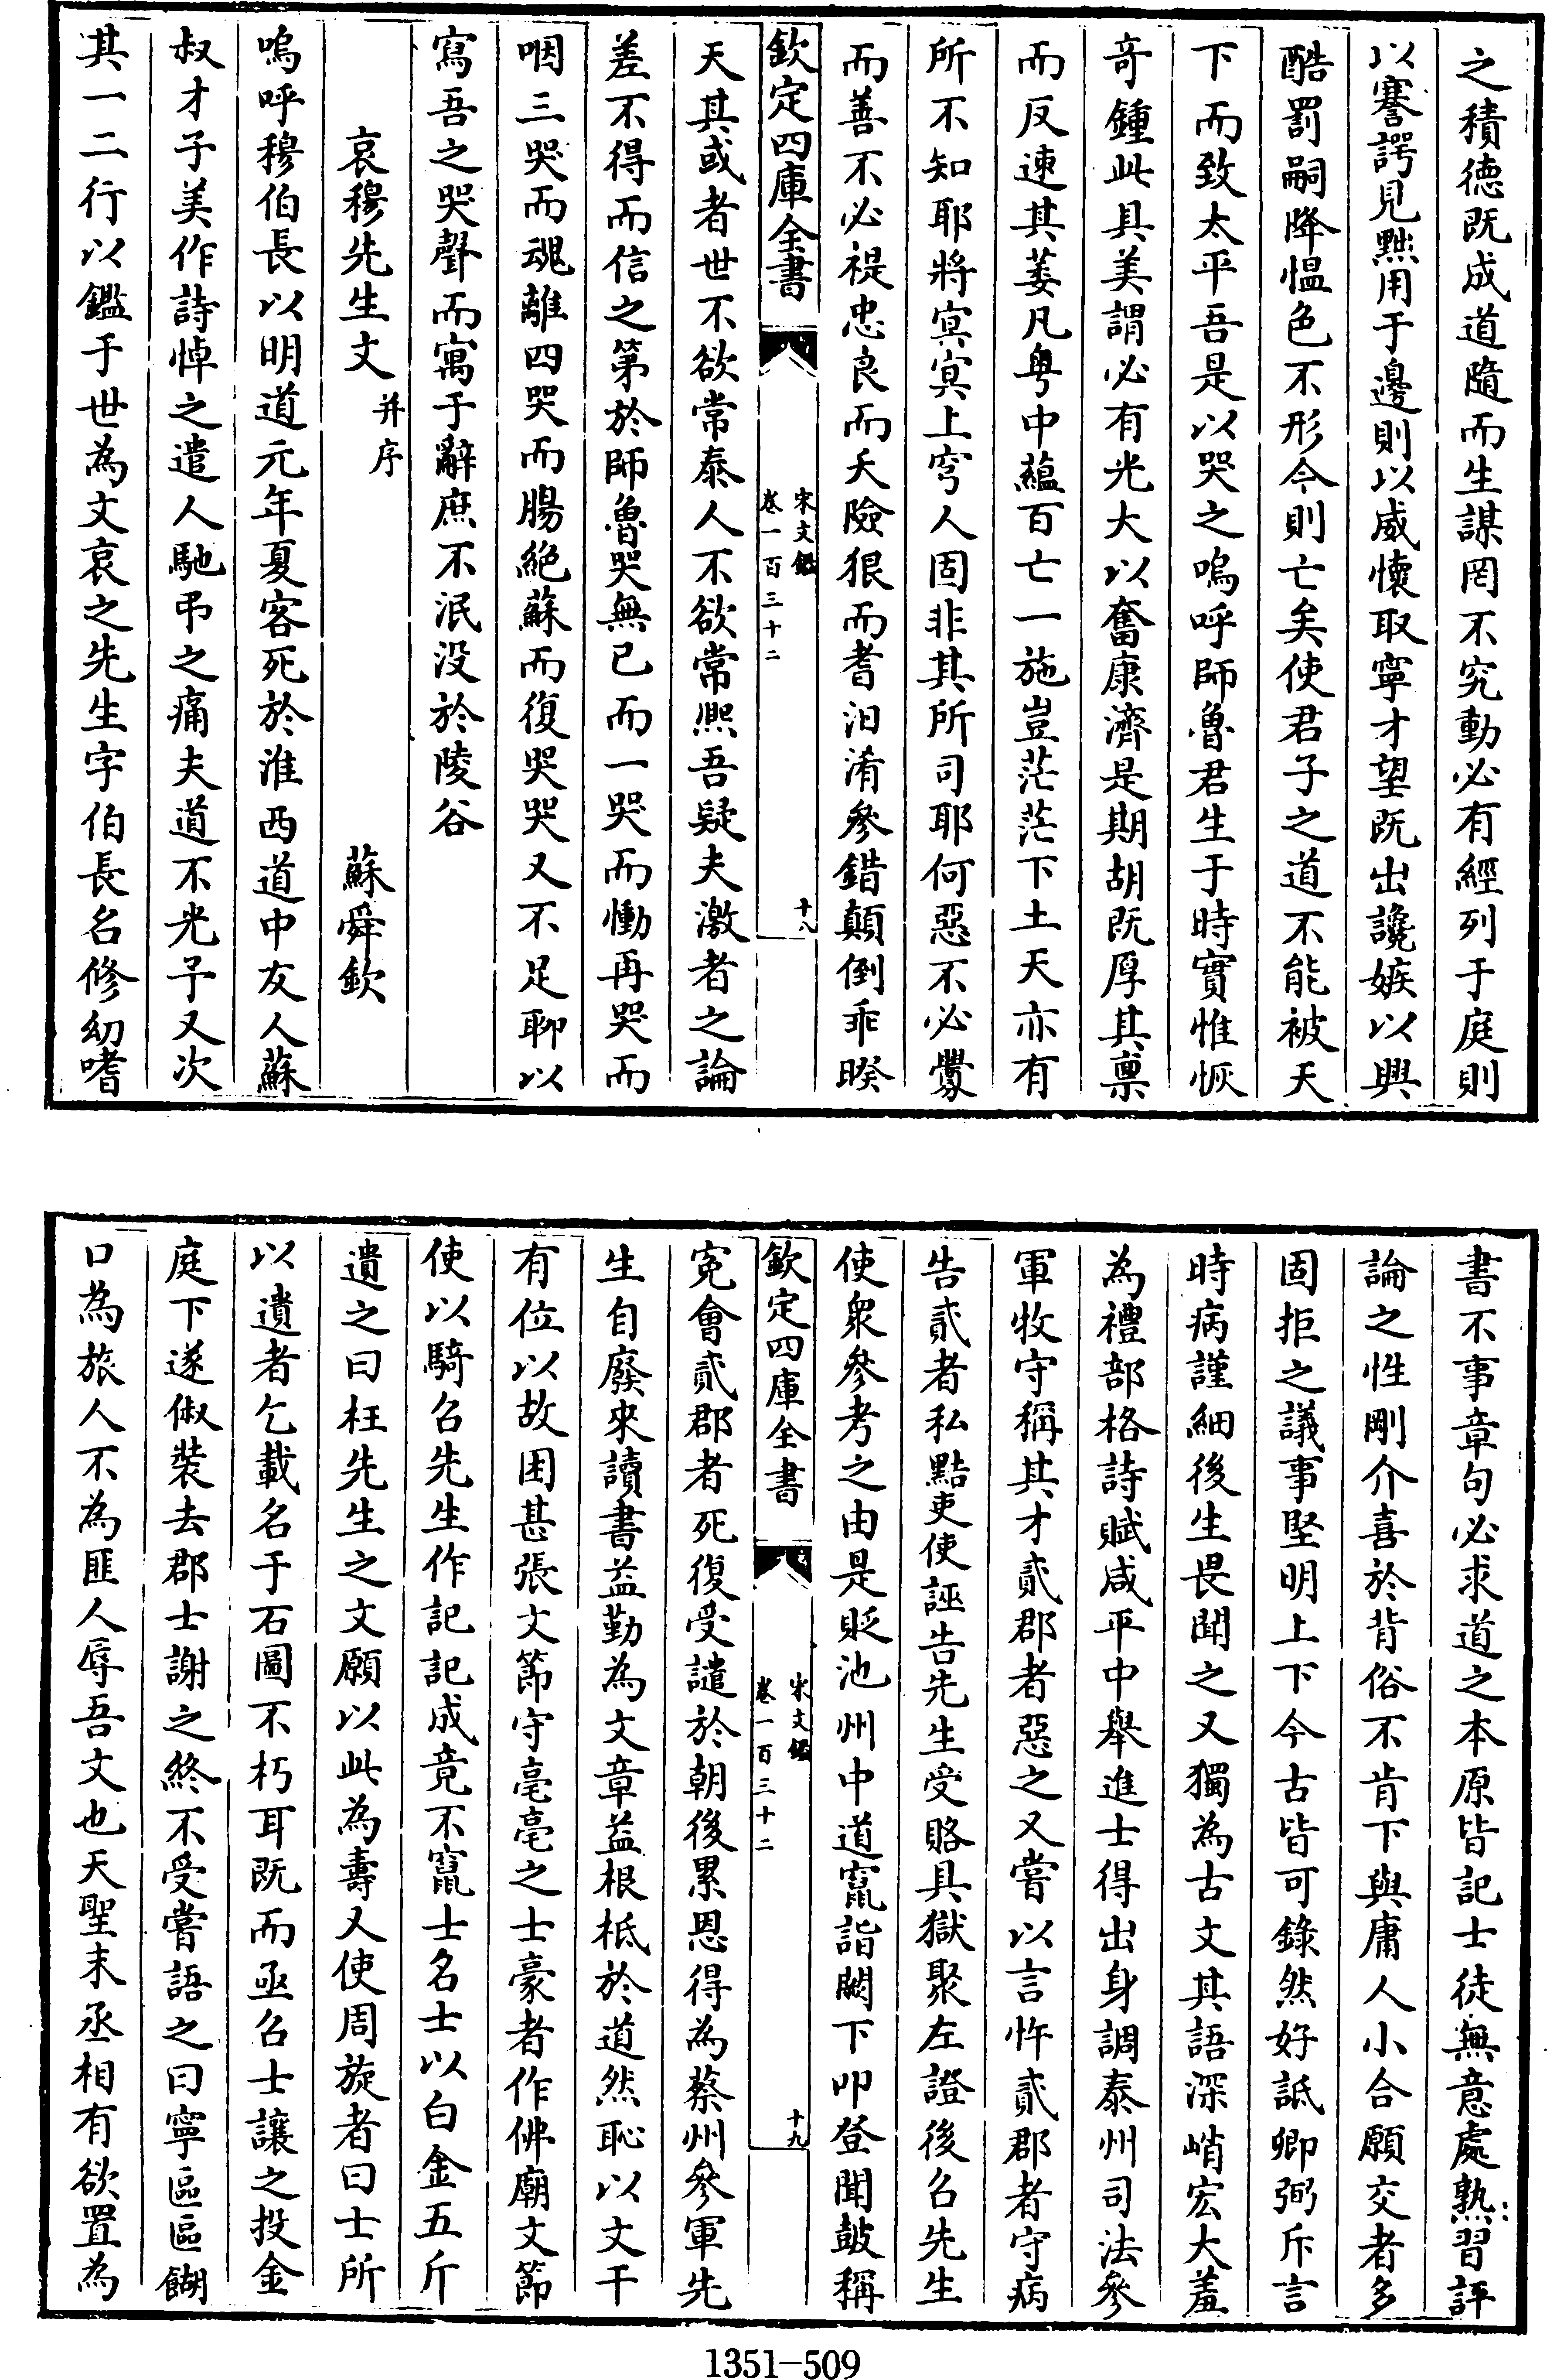 之積德既成道隨而生謀罔不究動必有經列于庭則
以謇諤見黜用于邊則以威懷取寧才望既出讒嫉以興
酷罰嗣降愠色不形今則亡矣使君子之道不能被天
下而致太平吾是以哭之嗚呼師魯君生于時實惟恢
奇鍾此具美謂必有光大以奮康濟是期胡既厚其禀
而反速其萎凡粤中蘊百亡一施豈茫茫下土天亦有
所不知耶將㝠㝠上穹人固非其所司耶何惡不必釁
而善不必禔忠良而夭險狠而耆汩淆參錯顛倒乖睽
欽定四庫全書
宋文鑑
卷一百三十二
十八
天其或者世不欲常泰人不欲常熙吾疑夫激者之論
差不得而信之第於師魯哭無已而一哭而慟再哭而
咽三哭而魂離四哭而腸絶蘇而復哭哭又不足聊以
寫吾之哭聲而寓于辭庶不泯没於陵谷
哀穆先生文并序
蘇舜欽
嗚呼穆伯長以明道元年夏客死於淮西道中友人蘇
叔才子美作詩悼之遣人馳弔之痛夫道不光予又次
其一二行以鑑于世為文哀之先生字伯長名修幼嗜
書不事章句必求道之本原皆記士徒無意處熟習評
論之性剛介喜於背俗不肯下與庸人小合願交者多
固拒之議事堅明上下今古皆可錄然好詆卿弼斥言
時病謹細後生畏聞之又獨為古文其語深峭宏大羞
為禮部格詩賦咸平中舉進士得出身調泰州司法參
軍牧守稱其才貳郡者惡之又嘗以言忤貳郡者守病
告貳者私黠吏使誣告先生受賂具獄聚左證後召先生
使衆參考之由是貶池州中道竄詣闕下叩登聞皷稱
欽定四庫全書
宋文鑑
卷一百三十二
十九
寃會貳郡者死復受譴於朝後累恩得為蔡州參軍先
生自廢來讀書益勤為文章益根柢於道然恥以文干
有位以故困甚張文節守亳亳之士豪者作佛廟文節
使以騎召先生作記記成竟不竄士名士以白金五斤
遺之曰枉先生之文願以此為壽又使周旋者曰士所
以遺者乞載名于石圖不朽耳既而亟召士讓之投金
庭下遂俶裝去郡士謝之終不受嘗語之曰寧區區餬
口為旅人不為匪人辱吾文也天聖末丞相有欲置為
1351-509